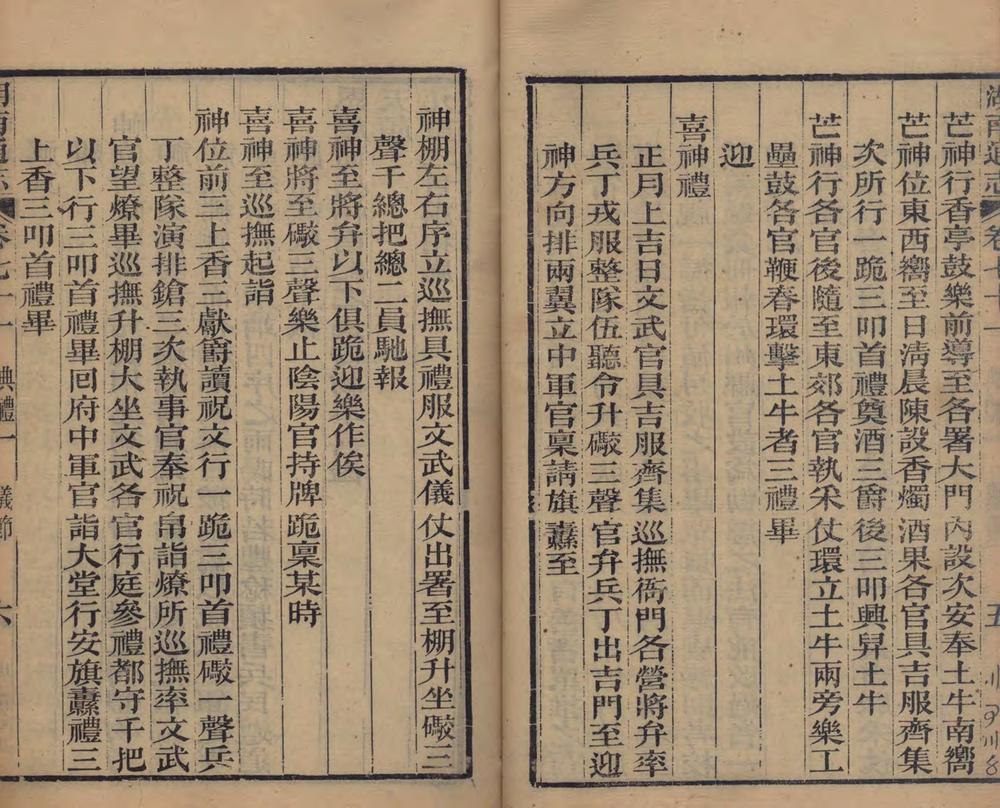 湖南通志 卷七十一 五
芒神行香亭鼓樂前導至各署大門內設次安奉土牛南嚮
芒神位東西嚮至日淸晨陳設香燭酒果各官具吉服齊集
次所行一跪三叩首禮奠酒三爵後三叩興舁土牛
芒神行各官後隨至東郊各官執采仗環立土牛兩旁樂工
壘鼓各官鞭春環擊土牛者三禮畢
迎
喜神禮
正月上吉日文武官具吉服齊集巡撫衙門各營將弁率
兵丁戎服整隊伍聽令升礮三聲官弁兵丁出吉門至迎
神方向排兩翼立中軍官稟請旗纛至
神棚左右序立巡撫具禮服文武儀仗出署至棚升坐礮三
聲千總把總二員馳報
喜神至將弁以下俱跪迎樂作俟
喜神將至礮三聲樂止陰陽官持牌跪稟某時
喜神至巡撫起詣
神位前三上香三獻爵讀祝文行一跪三叩首禮礮一聲兵
丁整隊演排鎗三次執事官奉祝帛詣燎所巡撫率文武
官望燎畢巡撫升棚大坐文武各官行庭參禮都守千把
以下行三叩首禮畢囘府中軍官詣大堂行安旗纛禮三
上香三叩首禮畢
湖南通志 卷七十一 典禮一 儀節 六